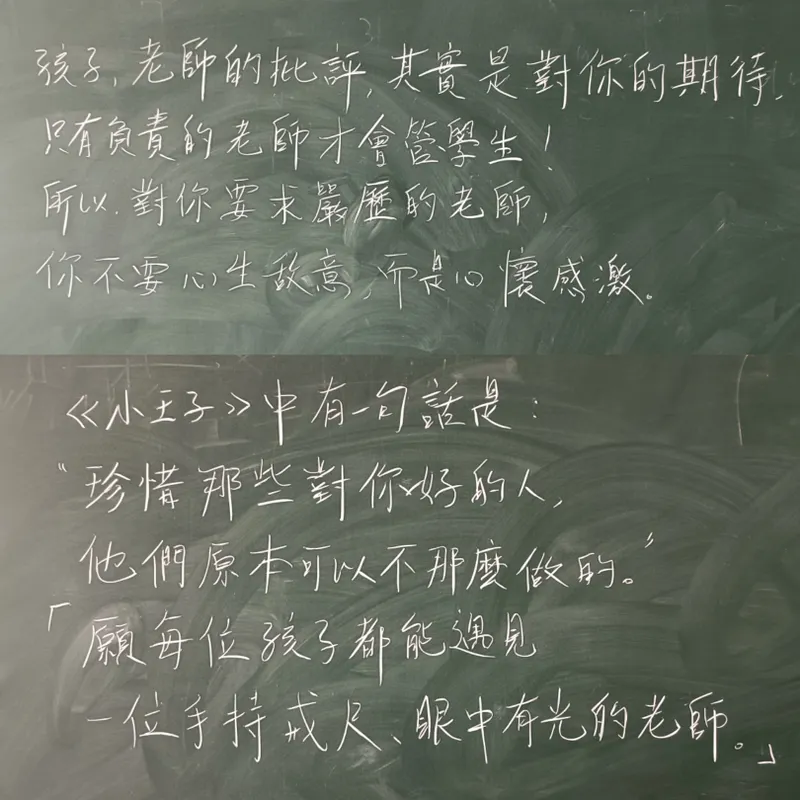 孩子,老師的批評,其實是對你的期待,
只有負責的老師才會管學生!
所以.對你要求嚴歷的老師,
你不要心生敌意,而是心懷感激。
《小王子》中有一句話是:
“珍惜那些對你好的人,
他們原本可以不那麼做的。”
「願每位孩子都能遇見
一位手持戒尺、眼中有光的老師。」